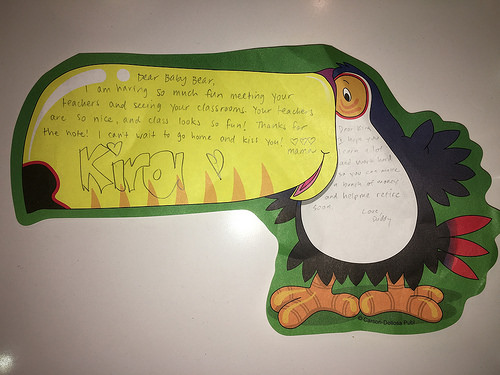 Dear Baby Bear,
I am having so much fun meeting your
teachers and seeing your classrooms. Your teachers
are so nice, and class looks so fun! Thanks for
the note! I can't wait to go home and kiss you! ♡♡♡
mama
Kira ♡
Dear Kira
I hope you
learn a lot
and work hard
so you can make
a bunch of money
and help me retire
soon.
Love
Daddy
©Carson-Dellosa Publ